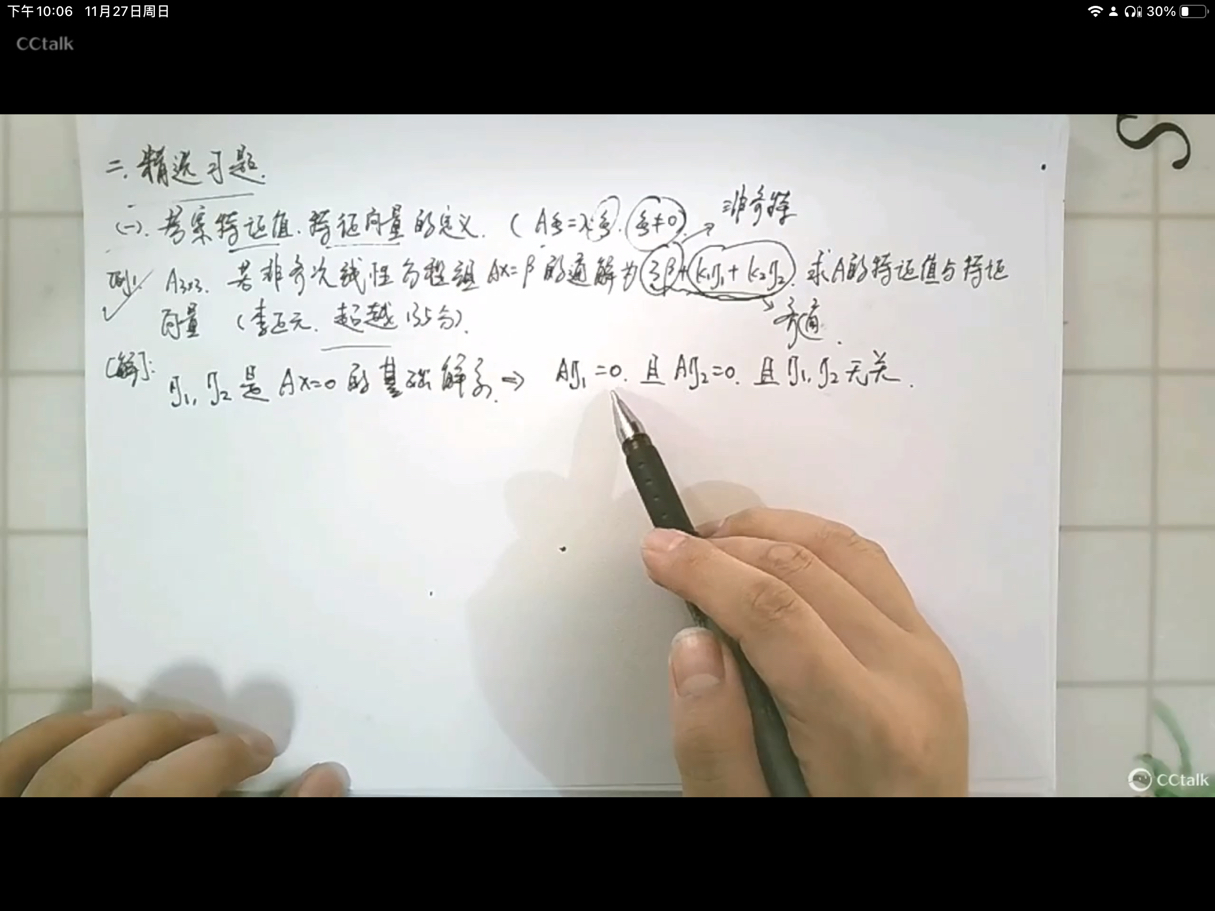 下午10:06 11月27日周日
30%
CCtalk
二. 精选习题.
(一). 考察特征值、特征向量的定义. (Aξ=λξ. ξ≠0)
非齐特
例1 A₃ₓ₃. 若非齐次线性方程组 Ax=β 的通解为 3β+k₁η₁+k₂η₂. 求A的特征值与特征
向量 (李正元. 超越135分).
齐通.
[解]: η₁, η₂ 是 Ax=0 的基础解系. ⇒ Aη₁=0. 且 Aη₂=0. 且 η₁, η₂ 无关.
CCtalk